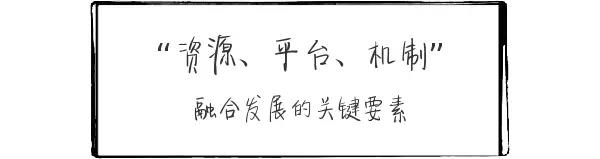 “资源、平台、机制”
融合发展的关键要素